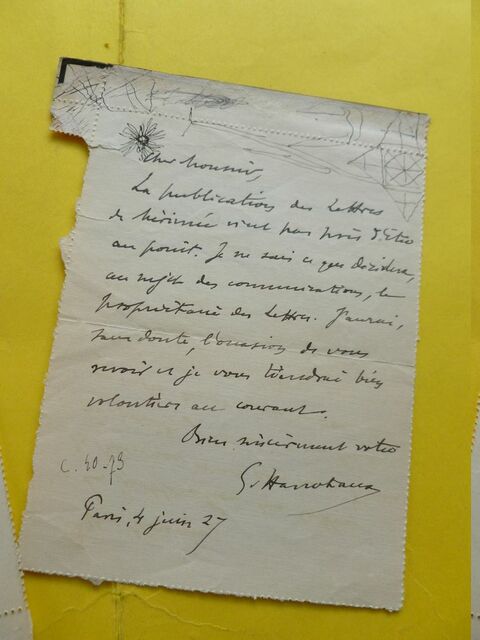 Cher Monsieur,
La publication des Lettres
de Mérimée n'est pas près d'être
au point. Je ne sais ce que décidera,
au sujet des communications, le
propriétaire des Lettres. J'aurai,
sans doute, l'occasion de vous
revoir et je vous tiendrai bien
volontiers au courant.
Bien sincèrement votre
G. Hanotaux
C. 20-73
Paris, 4 juin 27